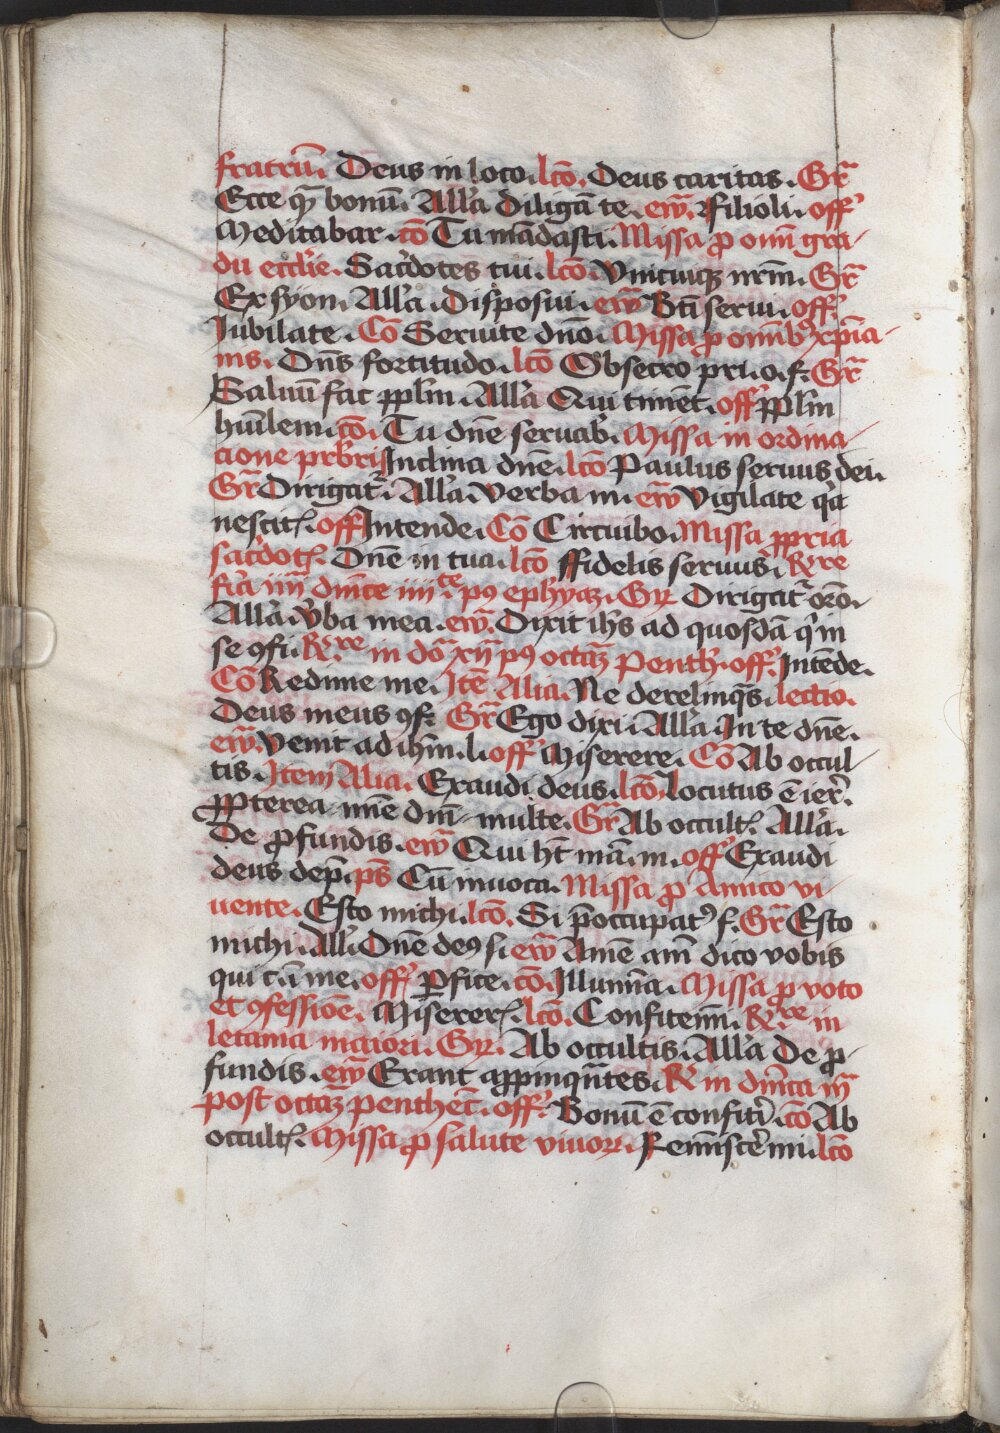 fratrū. Deus in loco. lcō. Deus caritas. Gr̄
Ecce q̄ bonū. All'a Diligā te. ew̄. Filioli. off'
Meditabar. cō Tu mādasti. Missa ꝓ omī gra-
du eccl'ie. Sac'dotes tui. lcō Vnicuiqꝫ nrm̄. Gr̄
Ex syon. All'a. Disposui. ew̄ Bt̄i serui. off'.
Iubilate. Cō Seruite dn̄o. Missa ꝓ omībꝰ xp̄ia-
nis. Dn̄s fortitudo. lcō Obsecro pri. o. f. Gr̄
Saluū fac ppl'm. All'a Qui timēt. off' ppl'm
hūilem. cō. Tu dn̄e seruab'. Missa in ordina-
cione prb'ri Inclina dn̄e. lcō Paulus seruus dei.
Gr̄ Dirigat'. All'a. Verba m. ew̄ Vigilate q'a
nescit. off Intende. Cō Circuibo. Missa ꝓpria
sac'dot. Dn̄e in tua. lcō ffidelis seruus. R're
fr'a iiij dn̄ice iiij te pꝰ ephyaꝫ. Gr. Dirigat' orō.
All'a. v'ba mea. ew̄. Dixit ih's ad quosdā q' in
se ꝯfi. R're in dō xij pꝰ octaꝫ Penth'. off'. Intēde.
Cō Redime me. Itē Alia. Ne derelinq̄s. lectio.
Deus meus ꝯf. Gr̄ Ego dixi. All'a In te dn̄e.
ew̄. Venit ad ih'm. l. off' Miserere. Cō Ab occul-
tis. Item Alia. Exaudi deus. lcō. locutus ē ier'.
ꝓpterea mn̄e dm̄ multe. Gr̄ Ab occult. All'a.
De ꝓfundis. ew̄ Qui h't mā. m. off' Exaudi
deus dep̄. ps̄ Cū inuoca. Missa ꝓ Amico vi-
uente. Esto michi. lcō. Si p̄occupatꝰ f. Gr̄ Esto
michi. All'. Dn̄e deꝰ s. ew̄ Amē am̄ dico vobis
qui c. ī me. off' ꝑfice. cō. Illumīa. Missa ꝓ voto
et ꝯfessiōe. Miserer. lcō. Confitemī. R're in
letania maiori. Gr. Ab occultis. All'a De ꝓ-
fundis. ew̄ Erant appinq̄ntes. R' in dn̄ica iij
post octaꝫ penthec̄. off'. Bonū ē confit'i. cō Ab
occult. Missa ꝓ salute viuoꝝ. Remīscere mi. lcō